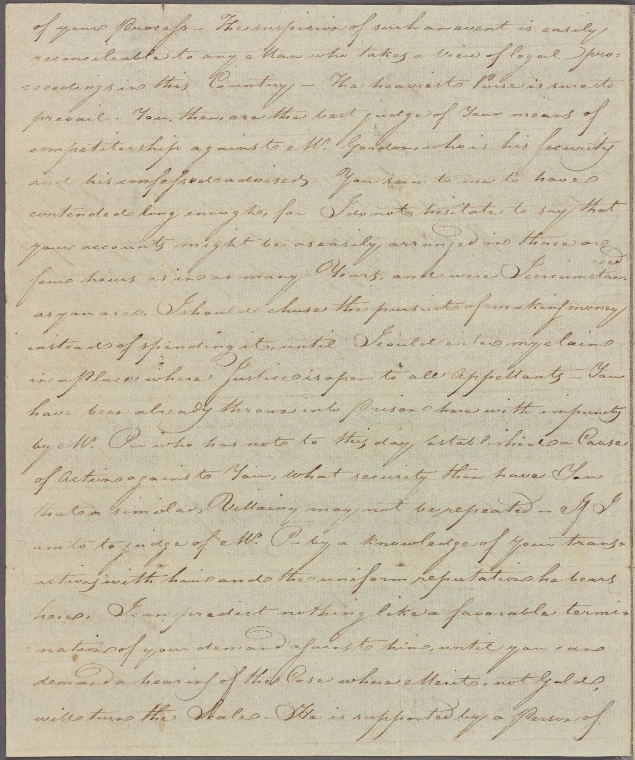 of your Process – The suspicion of such an event is easily
reconcileable to any Man who takes a view of legal pro=
=ceedings in this Country – The heaviest Purse is sure to
prevail – You, then, are the best judge of Your means of
competitorship against Mr. Gordon, who is his Security
and his confessed adviser, – You seem to me to have
contended long enough, for I do not hesitate to say that
your accounts might be as easily arranged in three or
four hours as in as many Years, and were I circumstan=
=ced
as you are, I should chuse the pursuit of making money
instead of spending it, until I could enter my claim
in a Place where Justice is open to all Appellants – You
have been already thrown into Prison here with impunity
by Mr. P– who has not to this day established a Cause
of Action against You, what security then have You
that a similar Villainy may not be repeated – If I
am to judge of Mr. P– by a knowledge of your trans=
actions with him and the uniform reputation he bears
here, I can predict nothing like a favorable termi=
=nation of your demand against him, until you can
demand a hearing of the Case where Merit, not Gold,
will turn the Scale – He is supported by a Person of